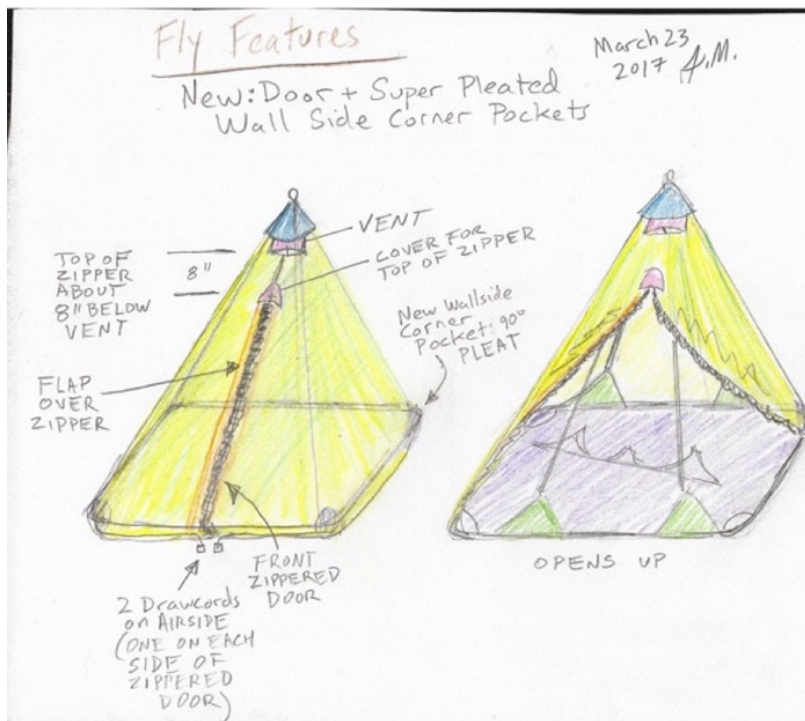 Fly Features
March 23
2017 A.M.
New: Door + Super Pleated
Wall Side Corner Pockets
VENT
COVER FOR
TOP OF ZIPPER
TOP OF
ZIPPER
ABOUT
8" BELOW
VENT
8"
New Wallside
Corner
Pocket: 90°
PLEAT
FLAP
OVER
ZIPPER
FRONT
ZIPPERED
DOOR
2 Drawcords
on AIRSIDE
(ONE ON EACH
SIDE OF
ZIPPERED
DOOR)
OPENS UP